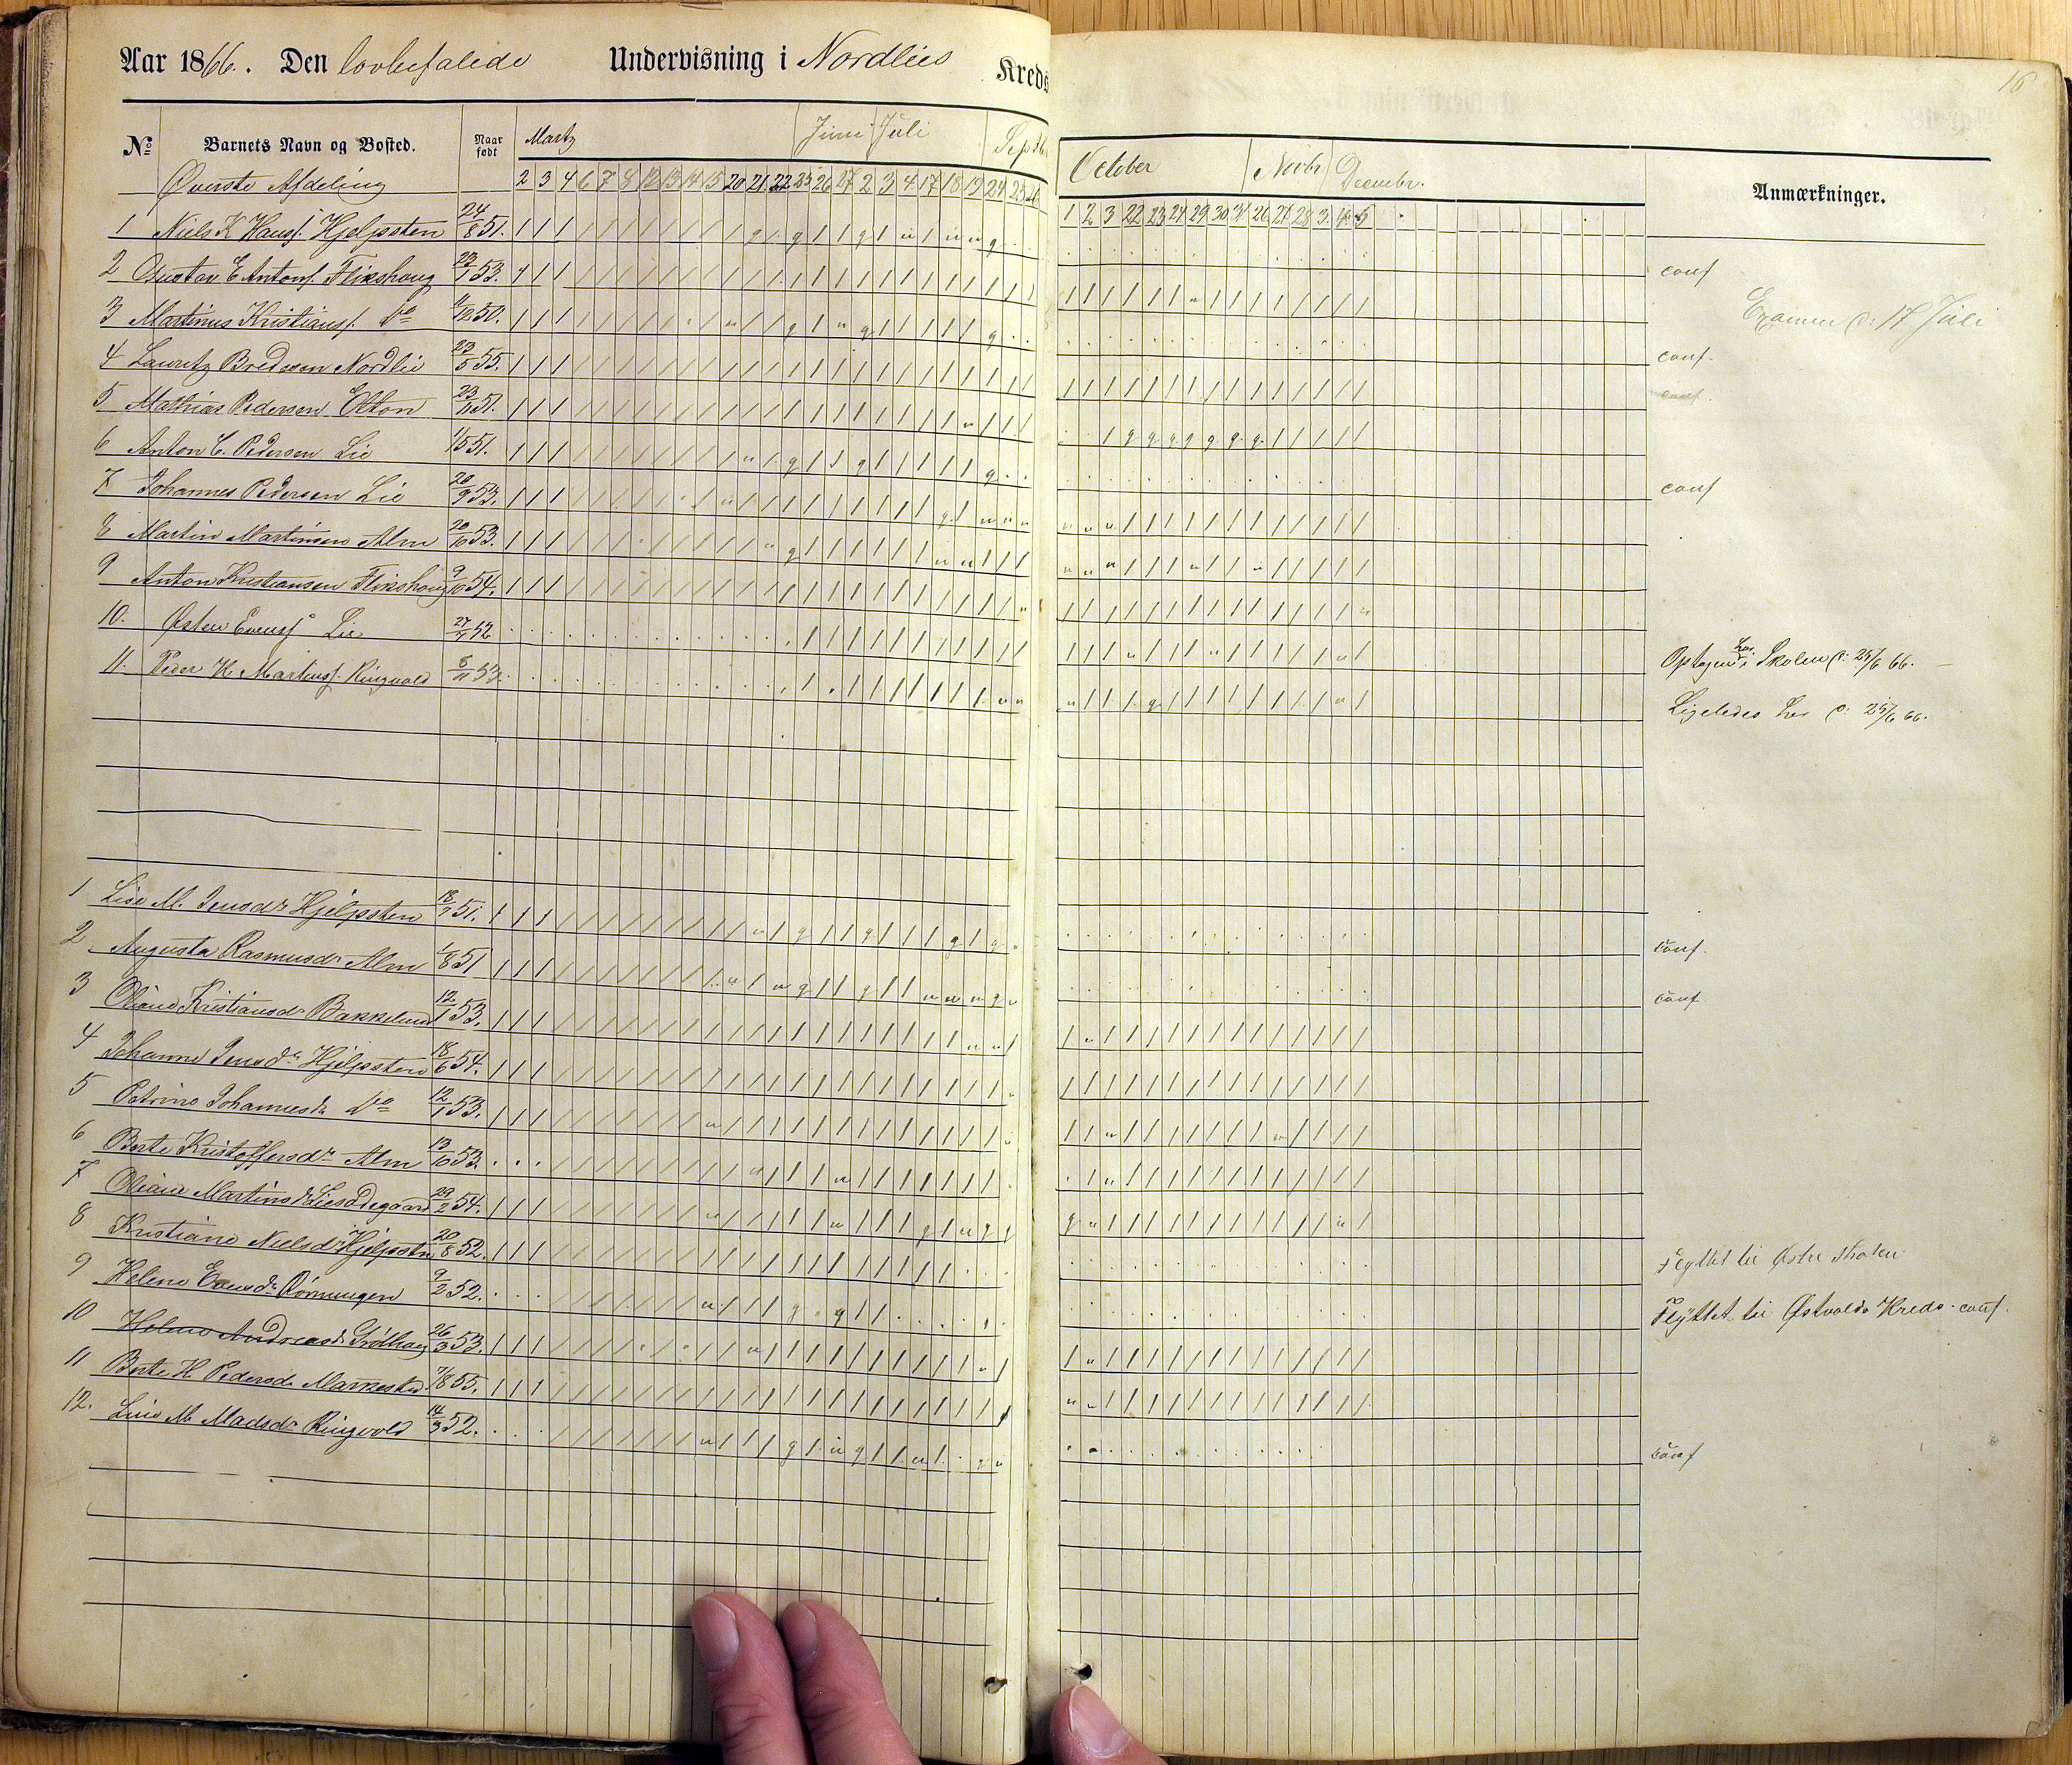 Aar 1866. Den lovbefalede Undervisning i Nordlies Kreds
16
No Barnets Navn og Bosted. Naar født Martz Juni Juli Septb October Novbr Decembr. Anmærkninger.
Øverste Afdeling 2 3 4 6 7 8 12 13 14 15 20 21 22 25 26 27 2 3 4 17 18 19 24 25 26 1 2 3 22 23 24 29 30 31 26 27 28 3. 4. 5
1 Niels K Hansf. Hjelpsten 24/8 51. conf
2 Gustav E Antonf. Flikshaug 23/1 53.
Examen d: 17 Juli
3 Martinus Kristiansf. do 4/12 50. conf.
4 Lauritz Bredesen Nordlie 23/5 55. conf.
5 Mathias Pedersen Elton 23/11 51.
6 Anton C. Pedersen Lie 1/5 51. conf
7 Johannes Pedersen Lie 20/9 53.
8 Martin Martinsen Alm 20/10 53.
9 Anton Kristiansen Flikshaug 9/10 54.
10. Østen Evensf Lie 27/11 52 Optagen her i Skolen d: 25/6 66.
11. Peder K. Martinsf. Ringvold 5/11 53. Ligeledes her d: 25/6 66.
1 Lise M. Jensdr Hjelpsten 18/7 51. conf.
2 Augusta Rasmusdr Alm 1/8 51 conf
3 Oliane Kristiansdr Bakkelund 12/1 53.
4 Johanne Jensdr Hjelpsten 18/6 54.
5 Petrine Johannesdr do 12/1 53.
6 Berte Kristoffersdr Alm 13/10 53.
7 Oliane Martinsdr Liesødegaard 29/2 54.
8 Kristiane Nielsdr Hjelpstn 20/8 52. Flyttet til Østre Thoten
9 Helene Evensdr Rørmungen 9/2 52. Flyttet til Østvolds Kreds. conf.
10 Helene Andreasdr Grøthaug 26/3 53.
11 Berte H Pedersdr Markestad 7/8 55.
12. Lise M Madsdr Ringvold 14/3 52. conf